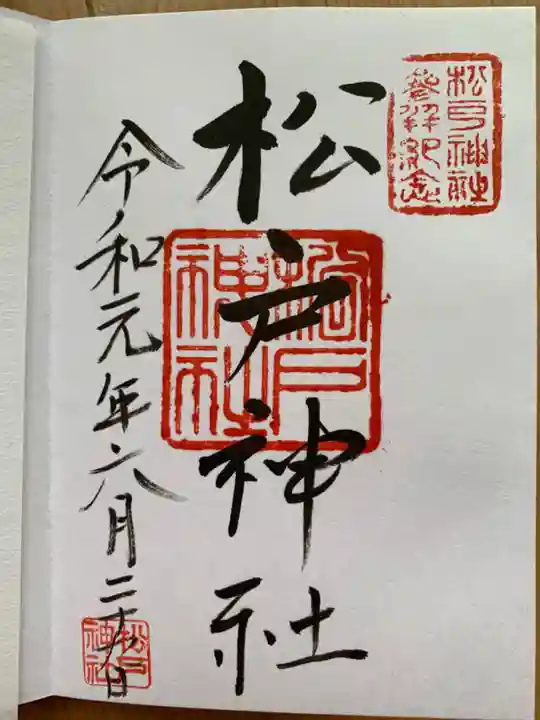 松戸神社
参拝紀念
松戸神社
松戸
神社
令和元年六月二十九日
松戸
神社